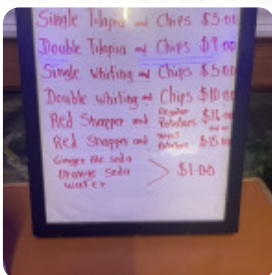 Single Tilapia and Chips $5.00
Double Tilapia and Chips $9.00
Single Whiting and Chips $5.00
Double Whiting and Chips $10.00
Red Snapper and Regular Potatoes
Red Snapper and Potatoes
Ginger Ale Soda
Orange Soda
water
$1.00